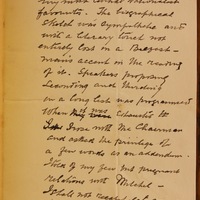 my most cordial Nationalist
favourite. The biographical
sketch was sympathetic and
with a literary touch not
entirely lost in a Bagosh-
mains accent in the reading
of it. Speakers proposing
Seconding and thirding
in a long list was programmed
When it was
from with the Chairman
and asked the privilege of
a few words as an addendum.
I told of my few but pregnant
relations with Mitchel -